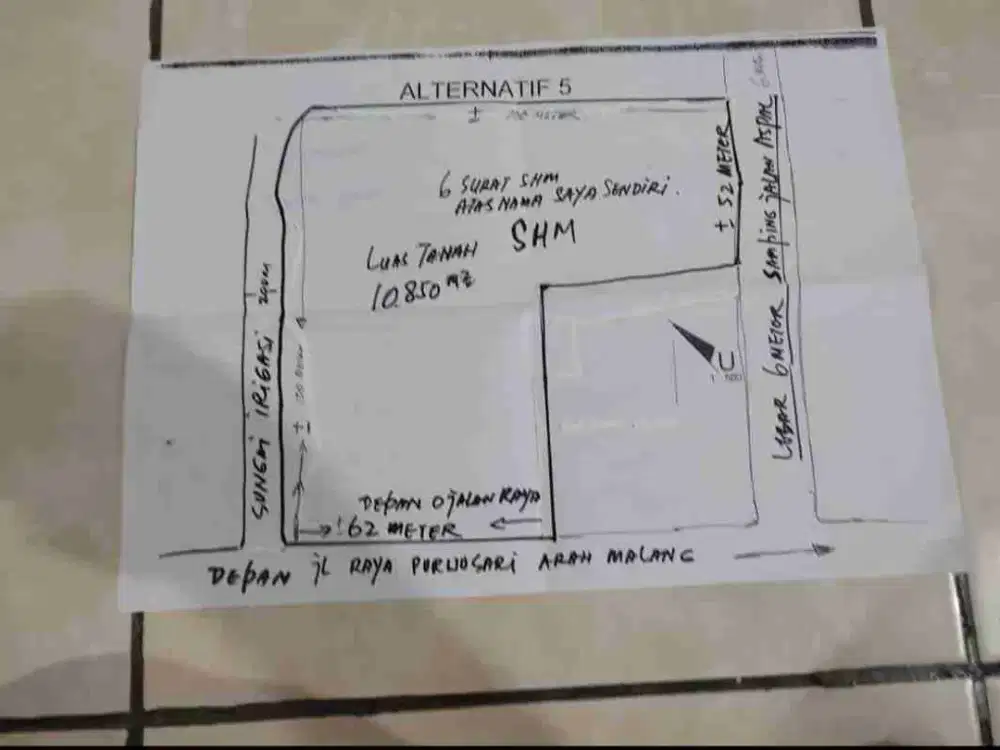 ALTERNATIF 5
± 100 METER
6 SURAT SHM
ATAS NAMA SAYA SENDIRI.
SHM
LUAS TANAH
10.850 M2
± 52 METER
LEBAR 6 METOR SAMPING JALAN ASPAL
SUNGAI IRIGASI
±
METER
U
1 : 500
DEPAN 0 JALAN RAYA
±62 METER
DEPAN JL RAYA PURWOSARI ARAH MALANG